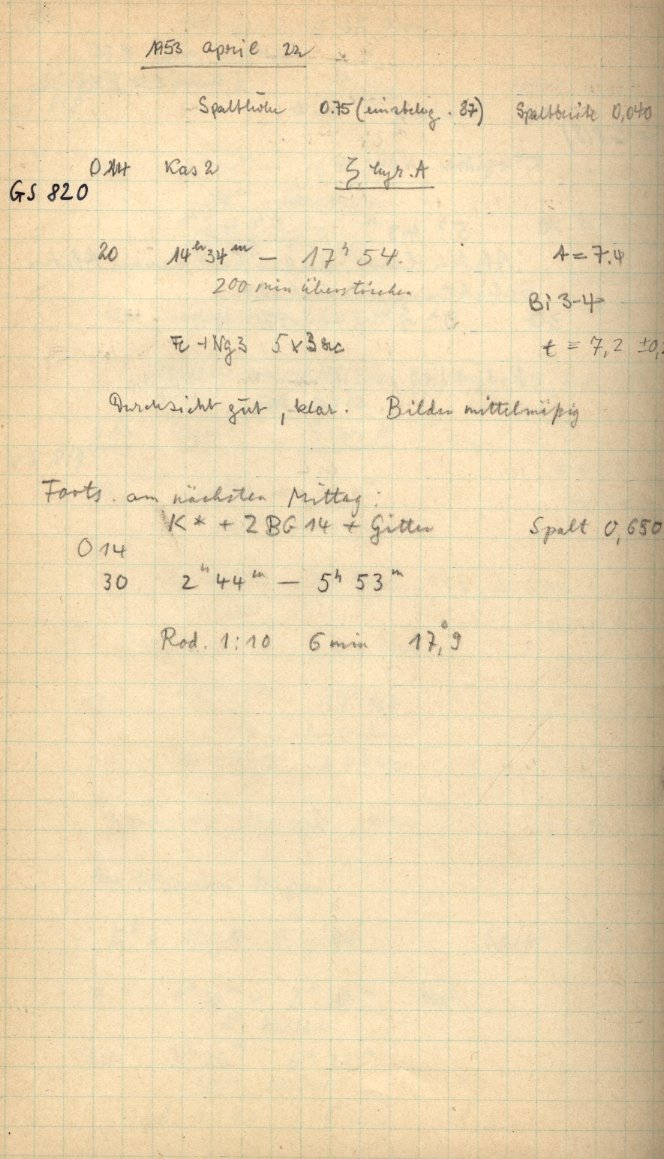 1953 april 22
Spalthöhe 0.75 (einstellg. 37) Spaltbreite 0,040
O 14 Kas 2 ζ Lyr. A
GS 820
20 14ʰ34ᵐ — 17ʰ 54. A = 7.4
200 min überstrichen
Bi 3-4
Fe + Ng3 5 x 3 sec t = 7,2 ±0,
Durchsicht gut, klar. Bilder mittelmäßig
Forts. am nächsten Mittag:
K* + 2 BG 14 + Gitter Spalt 0,650
O 14
30 2ʰ 44ᵐ — 5ʰ 53ᵐ
Rod. 1:10 6 min 17°,9